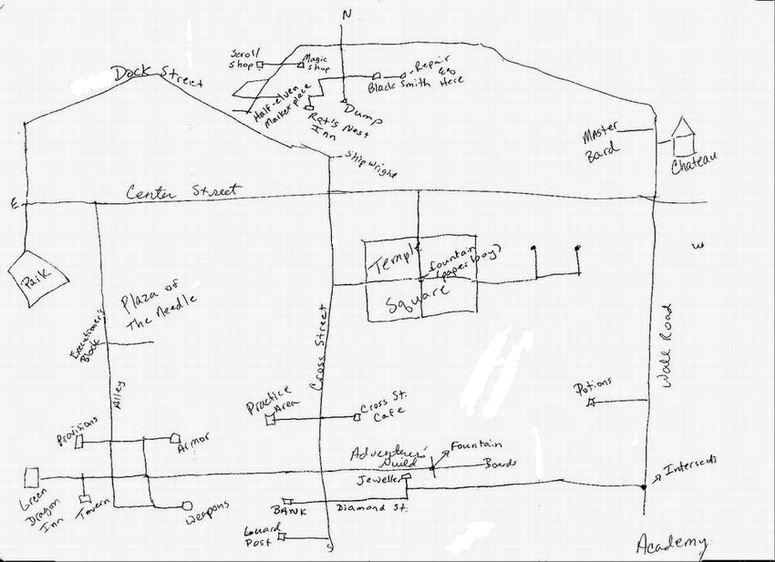 N
Scroll
Shop
Magic
Shop
Repair
Black Smith Here
Dock Street
Half-elven
Market place
Dump
Rat's Nest
Inn
Shipwright
Master
Bard
Chateau
E
Center Street
W
Park
Temple
Square
fountain
(paper boy)
Plaza of
The Needle
Executioner's
Block
Alley
Cross Street
Wall Road
Potions
Practice
Area
Cross St.
Cafe
Provisions
Armor
Adventurers'
Guild
Fountain
Boards
Jeweller
Green
Dragon
Inn
Tavern
Weapons
BANK
Diamond St.
Guard
Post
S
Intersecti
Academy